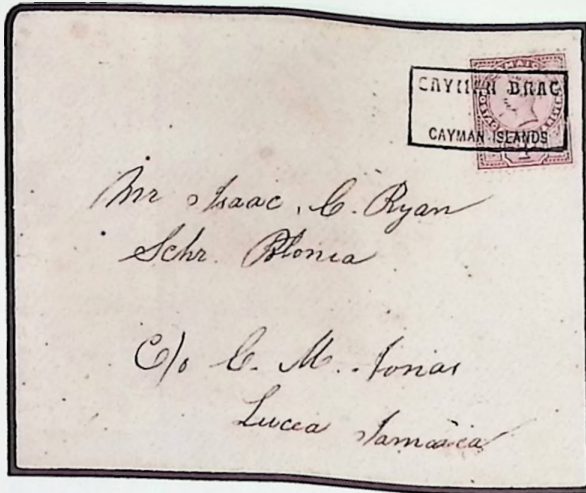 CAYMAN BRAC
CAYMAN ISLANDS
Mr Isaac. C. Ryan
Schr.
C/o C. M.
Lucea Jamaica